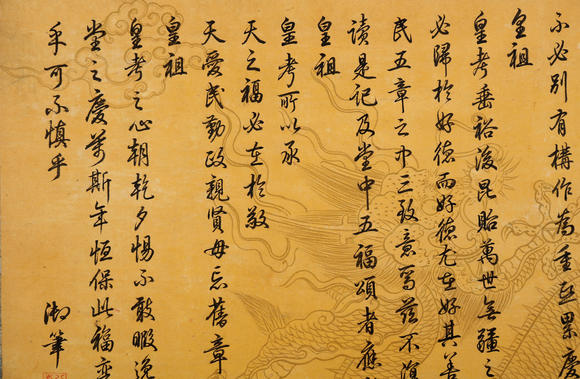 不必別有構作為重熙累慶
皇祖
皇考垂裕後昆貽萬世無疆之
必歸於好德而好德尤在好其善
民五章之中三致意焉茲不復
讀是記及堂中五福頌者應
皇祖
皇考所以承
天之福必在於敬
天愛民勤政親賢毋忘舊章
皇祖
皇考之心朝乾夕惕不敢暇逸
堂之慶萬斯年恆保此福
乎可不慎乎
御筆